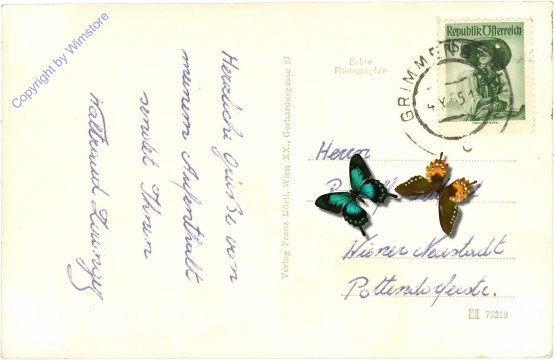 Copyright by Wimstore
Herzliche Grüße von
meinem Aufenthalt
sendet Ihnen
Waltraud
Verlag Franz Mörtl, Wien XX., Gerhardusgasse 27
Echte
Photographie
Republik Österreich
GRIMMEN
Herrn
Wiener Neustadt
Pottendorferstr.
75218